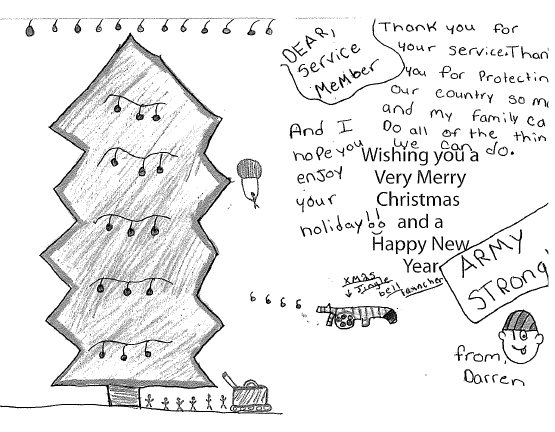 DEAR,
Service
Member
Thank you for
your service.Than
you for Protectin
our country so m
and my family ca
Do all of the thin
we can do.
And I
hope you
enjoy
your
holiday!!
Wishing you a
Very Merry
Christmas
and a
Happy New
Year
xmas
Jingle
bell
launcher
ARMY
STRONG
from,
Darren